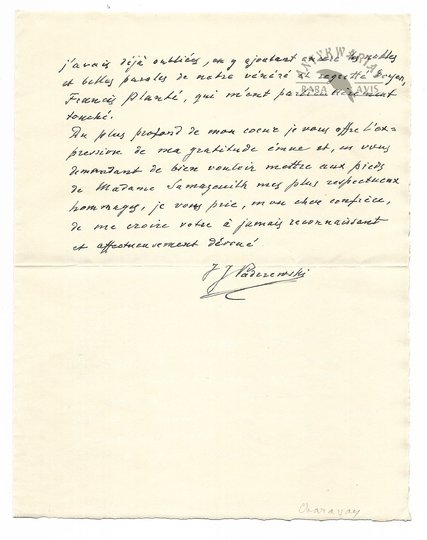 j'avais déjà oubliées, en y ajoutant encore les nobles
et belles paroles de notre vénéré et regretté Doyen,
Francis Planté, qui m'ont particulièrement
touché.
Du plus profond de mon coeur je vous offre l'ex-
pression de ma gratitude émue et, en vous
demandant de bien vouloir mettre aux pieds
de Madame Samazeuilh mes plus respectueux
hommages, je vous prie, mon cher confrère,
de me croire votre à jamais reconnaissant
et affectueusement dévoué
I J Paderewski
ANTYKWARIAT
RARA AVIS
Charavay